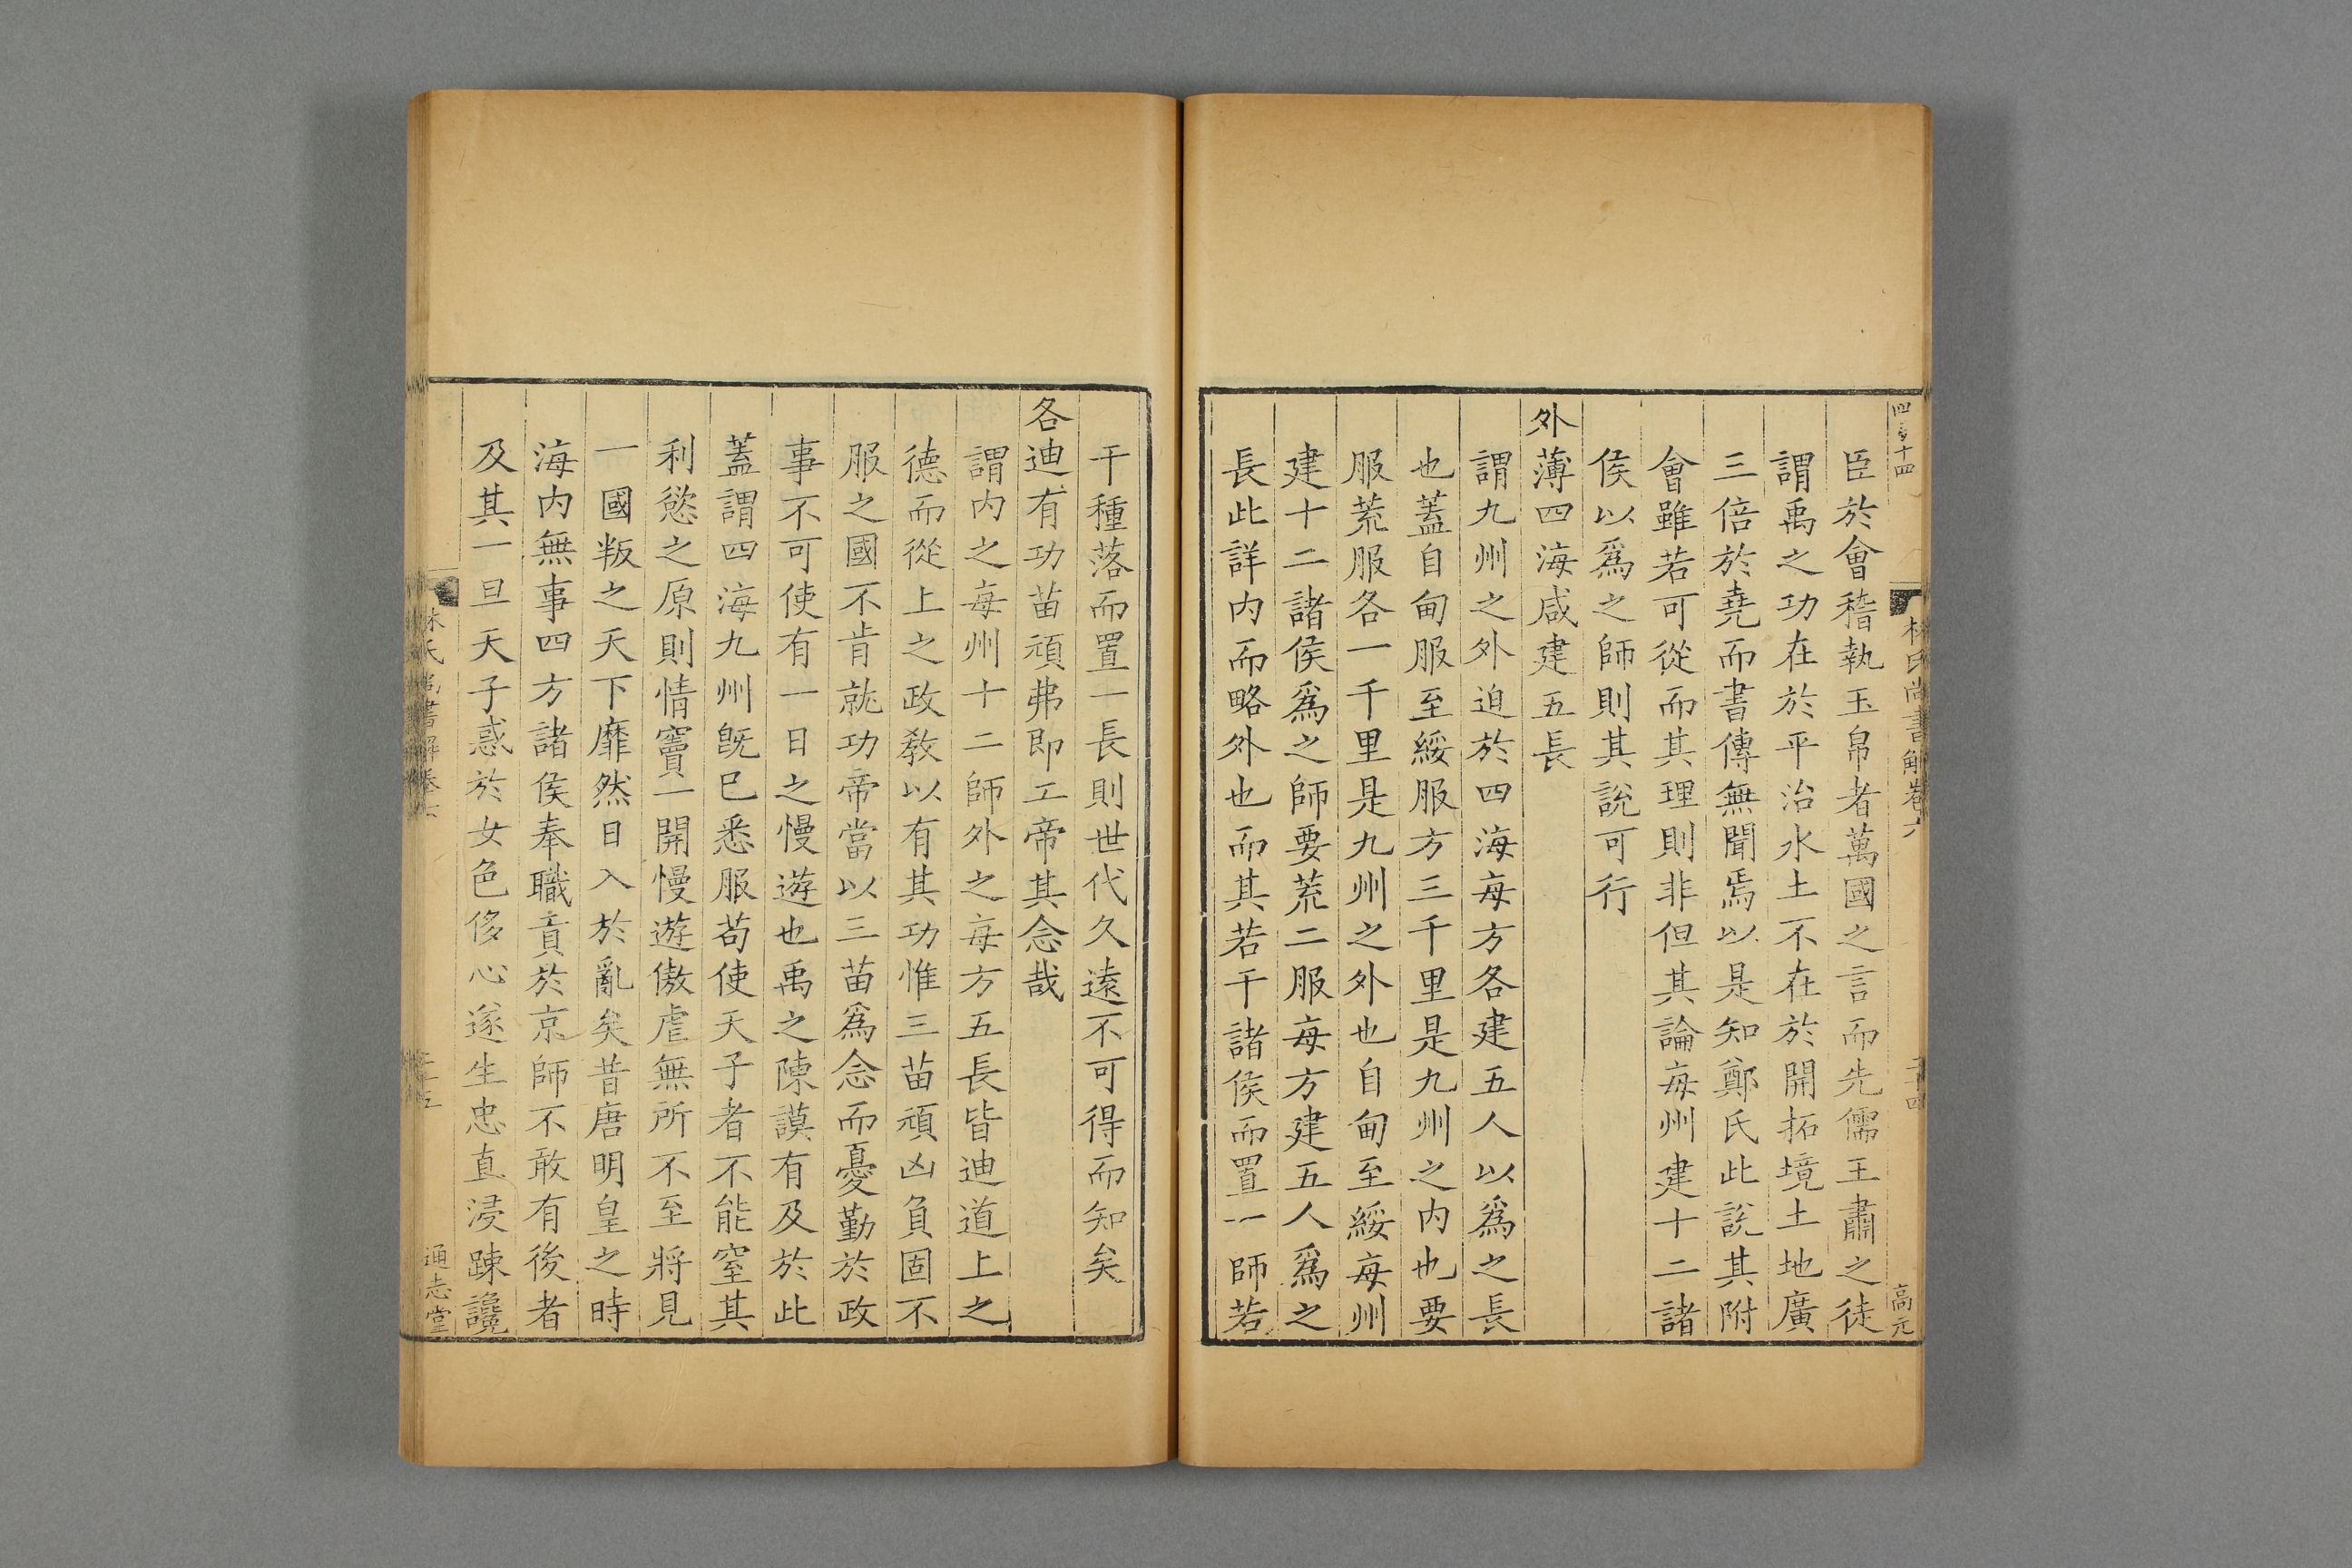 臣於會稽執玉帛者萬國之言而先儒王肅之徒
謂禹之功在於平治水土不在於開拓境土地廣
三倍於堯而書傳無聞焉以是知鄭氏此說其附
會雖若可從而其理則非但其論每州建十二諸
侯以爲之師則其說可行
外薄四海咸建五長
謂九州之外迫於四海每方各建五人以爲之長
也蓋自甸服至綏服方三千里是九州之内也要
服荒服各一千里是九州之外也自甸至綏每州
建十二諸侯爲之師要荒二服每方建五人爲之
長此詳内而略外也而其若干諸侯而置一師若
干種落而置一長則世代久遠不可得而知矣
各迪有功苗頑弗即工帝其念哉
謂内之每州十二師外之每方五長皆迪道上之
德而從上之政教以有其功惟三苗頑凶負固不
服之國不肯就功帝當以三苗爲念而憂勤於政
事不可使有一日之慢遊也禹之陳謨有及於此
蓋謂四海九州旣已悉服苟使天子者不能窒其
利慾之原則情竇一開慢遊傲虐無所不至將見
一國叛之天下靡然日入於亂矣昔唐明皇之時
海内無事四方諸侯奉職貢於京師不敢有後者
及其一旦天子惑於女色侈心遂生忠直浸踈讒
林氏尚書解卷六
高元
通志堂